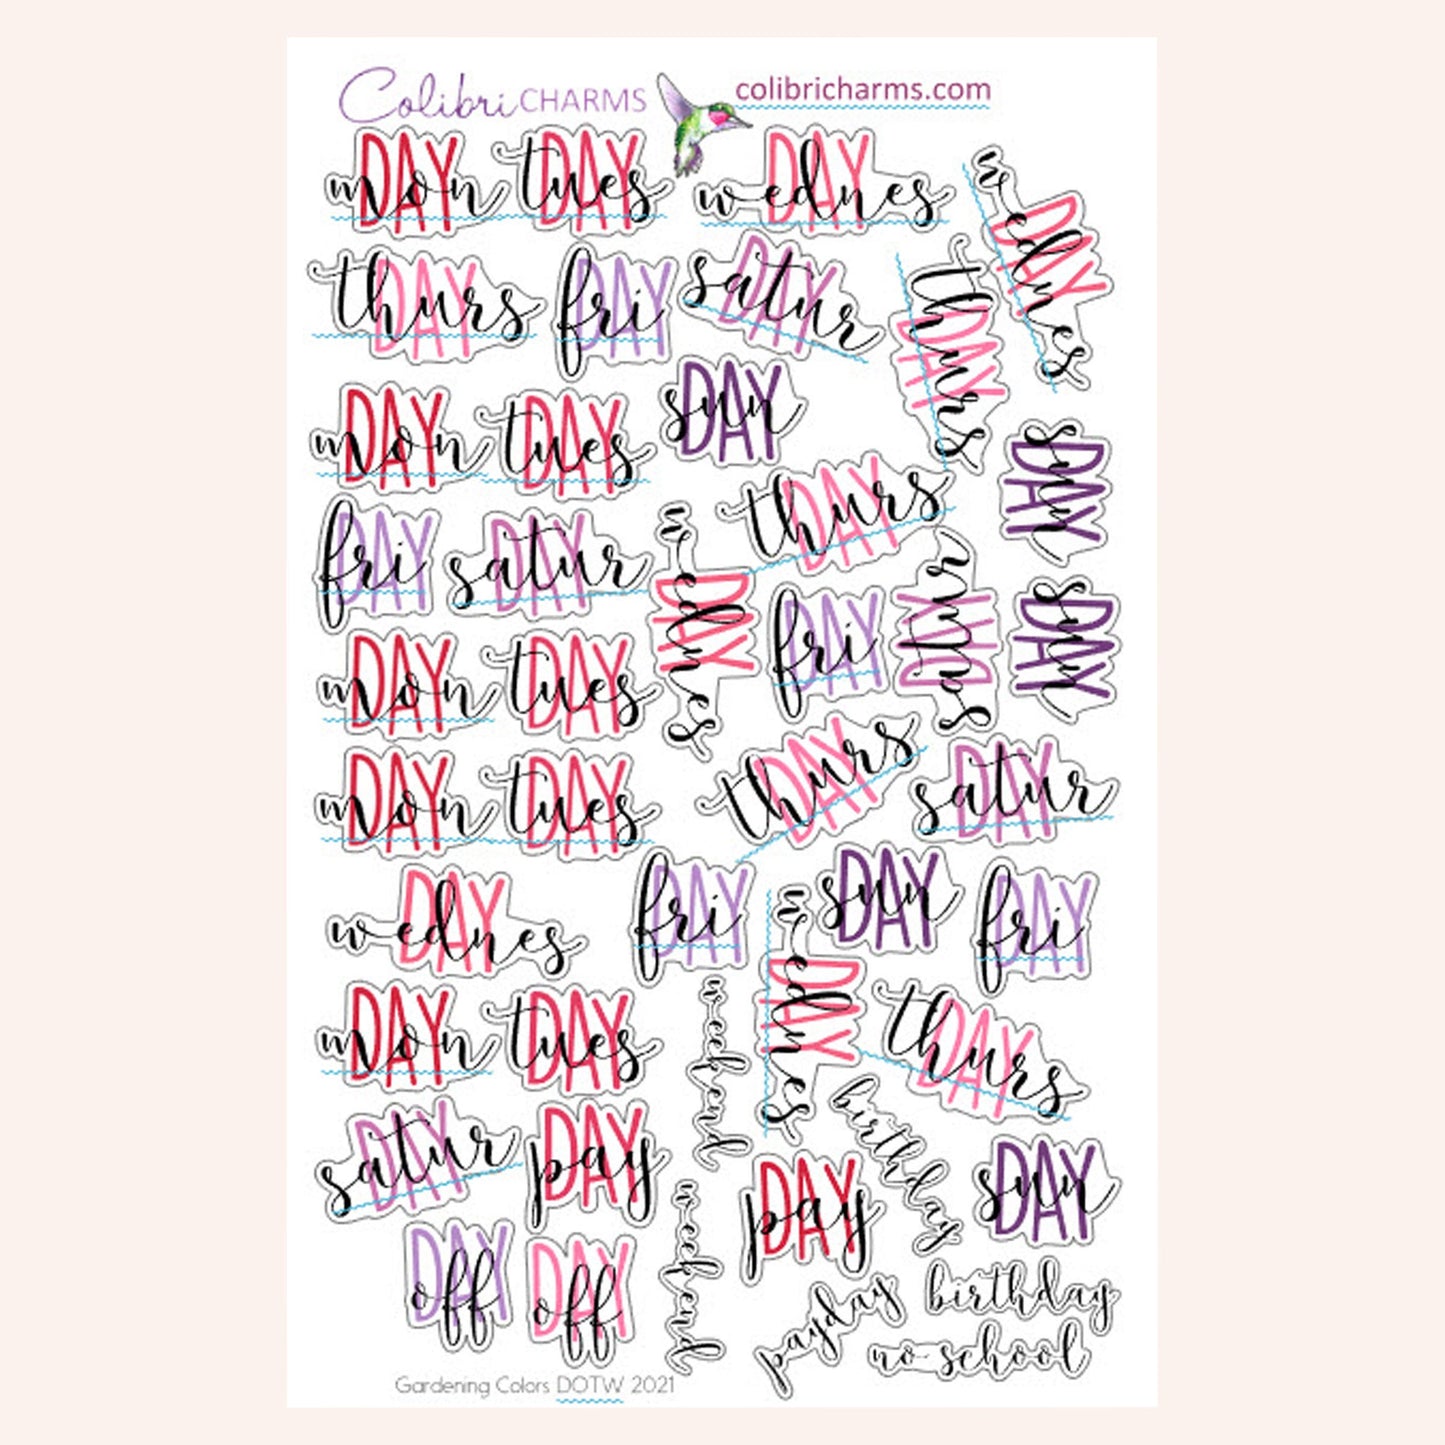 Colibri CHARMS colibricharms.com
monDAY tuesDAY wednesDAY wednesDAY
thursDAY friDAY saturDAY thursDAY
monDAY tuesDAY sunDAY sunDAY
friDAY saturDAY wednesDAY thursDAY
friDAY saturDAY sunDAY
monDAY tuesDAY
monDAY tuesDAY thursDAY saturDAY
wednesDAY friDAY wednesDAY sunDAY friDAY
monDAY tuesDAY weekend thursDAY
saturDAY payDAY birthday
payDAY sunDAY
DAY off DAY off weekend
payday birthday
no school
Gardening Colors DOTW 2021